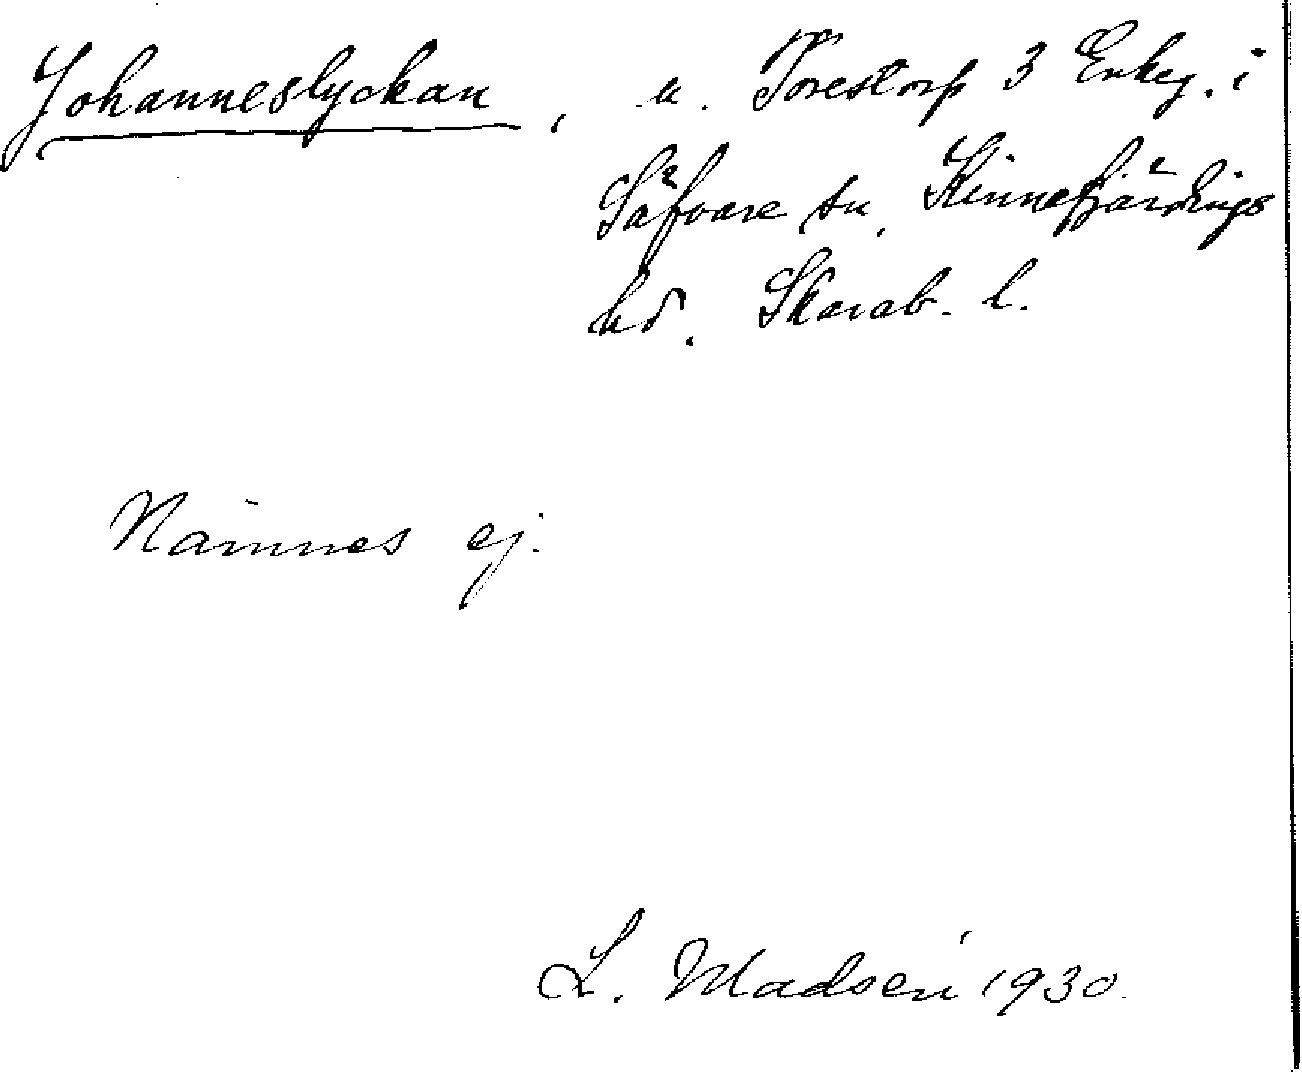 Johanneslyckan, u. Torestorp 3 Enkeg. i
Säfvare sn, Kinnefjärdings
hd. Skarab. l.
Nämnes ej.
L. Madsén 1930.